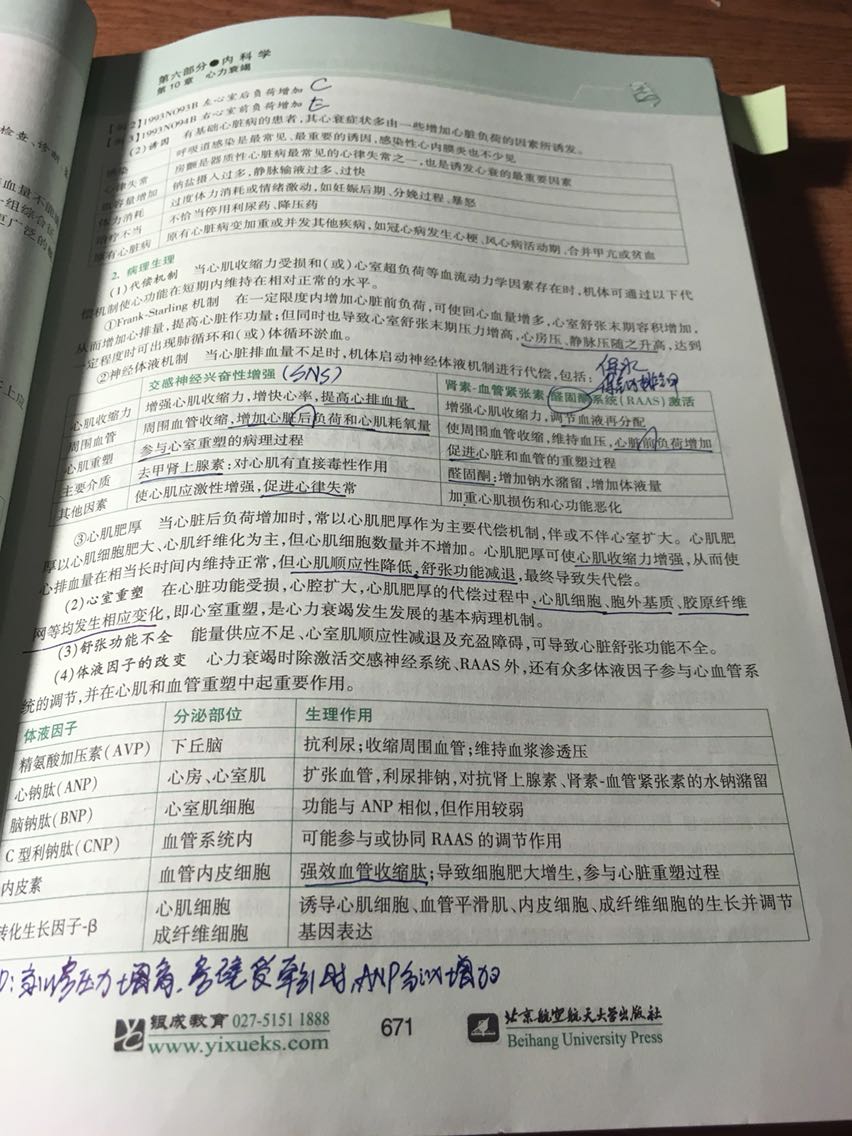 第六部分●内科学
第10章 心力衰竭
【例2】1993NO93B 左心室后负荷增加 C
【例3】1993NO94B 右心室前负荷增加 E
(2)诱因 有基础心脏病的患者,其心衰症状多由一些增加心脏负荷的因素所诱发。
感染 呼吸道感染是最常见、最重要的诱因,感染性心内膜炎也不少见
心律失常 房颤是器质性心脏病最常见的心律失常之一,也是诱发心衰的最重要因素
血容量增加 钠盐摄入过多,静脉输液过多、过快
体力消耗 过度体力消耗或情绪激动,如妊娠后期、分娩过程、暴怒
治疗不当 不恰当停用利尿药、降压药
原有心脏病 原有心脏病变加重或并发其他疾病,如冠心病发生心梗、风心病活动期、合并甲亢或贫血
2. 病理生理
(1)代偿机制 当心肌收缩力受损和(或)心室超负荷等血流动力学因素存在时,机体可通过以下代
偿机制使心功能在短期内维持在相对正常的水平。
①Frank-Starling 机制 在一定限度内增加心脏前负荷,可使回心血量增多,心室舒张末期容积增加,
从而增加心排量,提高心脏作功量;但同时也导致心室舒张末期压力增高,心房压、静脉压随之升高,达到
一定程度时可出现肺循环和(或)体循环淤血。
②神经体液机制 当心脏排血量不足时,机体启动神经体液机制进行代偿,包括:
保水
交感神经兴奋性增强 (SNS) 肾素-血管紧张素-醛固酮系统(RAAS)激活
心肌收缩力 增强心肌收缩力,增快心率,提高心排血量 增强心肌收缩力,调节血液再分配
周围血管 周围血管收缩,增加心脏后负荷和心肌耗氧量 使周围血管收缩,维持血压,心脏前负荷增加
心肌重塑 参与心室重塑的病理过程 促进心脏和血管的重塑过程
主要介质 去甲肾上腺素:对心肌有直接毒性作用 醛固酮:增加钠水潴留,增加体液量
其他因素 使心肌应激性增强,促进心律失常 加重心肌损伤和心功能恶化
③心肌肥厚 当心脏后负荷增加时,常以心肌肥厚作为主要代偿机制,伴或不伴心室扩大。心肌肥
厚以心肌细胞肥大、心肌纤维化为主,但心肌细胞数量并不增加。心肌肥厚可使心肌收缩力增强,从而使
心排血量在相当长时间内维持正常,但心肌顺应性降低,舒张功能减退,最终导致失代偿。
(2)心室重塑 在心脏功能受损,心腔扩大,心肌肥厚的代偿过程中,心肌细胞、胞外基质、胶原纤维
网等均发生相应变化,即心室重塑,是心力衰竭发生发展的基本病理机制。
(3)舒张功能不全 能量供应不足、心室肌顺应性减退及充盈障碍,可导致心脏舒张功能不全。
(4)体液因子的改变 心力衰竭时除激活交感神经系统、RAAS 外,还有众多体液因子参与心血管系
统的调节,并在心肌和血管重塑中起重要作用。
体液因子 分泌部位 生理作用
精氨酸加压素(AVP) 下丘脑 抗利尿;收缩周围血管;维持血浆渗透压
心钠肽(ANP) 心房、心室肌 扩张血管,利尿排钠,对抗肾上腺素、肾素-血管紧张素的水钠潴留
脑钠肽(BNP) 心室肌细胞 功能与 ANP 相似,但作用较弱
C 型利钠肽(CNP) 血管系统内 可能参与或协同 RAAS 的调节作用
内皮素 血管内皮细胞 强效血管收缩肽;导致细胞肥大增生,参与心脏重塑过程
转化生长因子-β 心肌细胞 诱导心肌细胞、血管平滑肌、内皮细胞、成纤维细胞的生长并调节
成纤维细胞 基因表达
压力增高,房壁受牵引时,ANP分泌增加
银成教育 027-5151 1888
www.yixueks.com
671
北京航空航天大学出版社
Beihang University Press